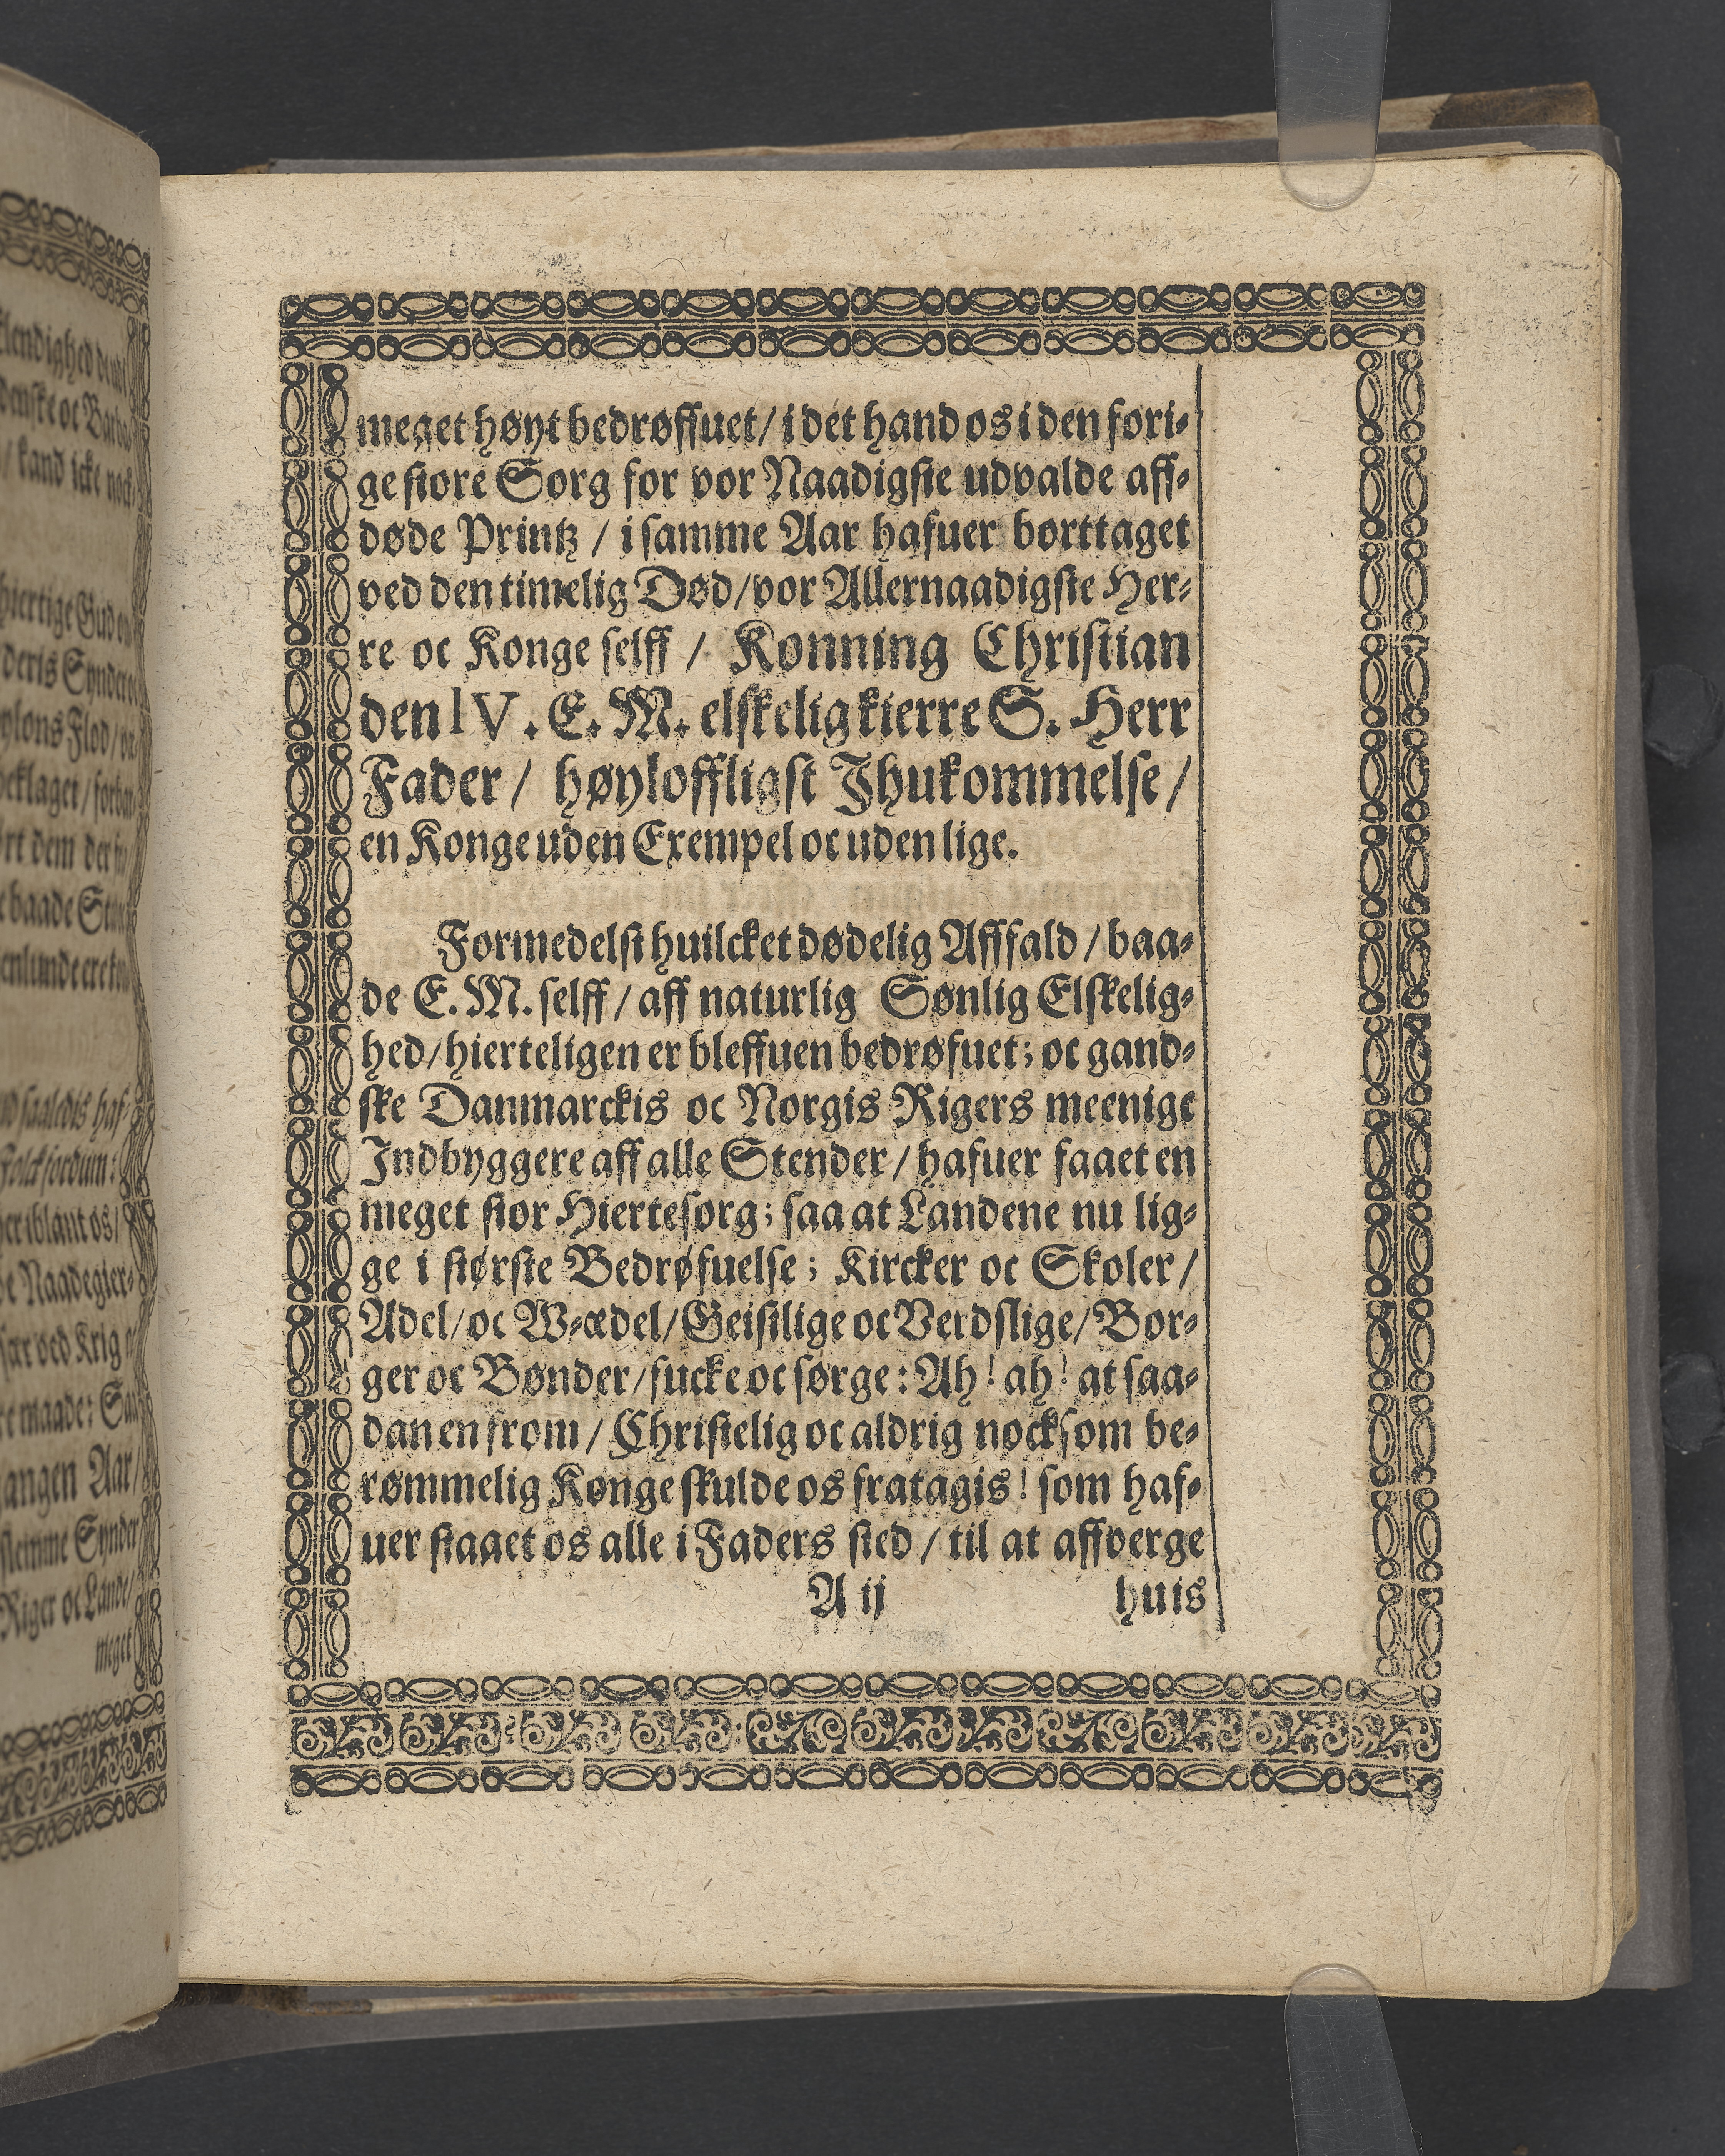 meget høyt bedrøffuet / i det hand os i den fori-
ge store Sorg for vor Naadigste udvalde aff-
døde Printz / i samme Aar hafuer borttaget
ved den timelig Død / vor Allernaadigste Her-
re oc Konge selff / Konning Christian
den IV. E. M. elskelig kierre S. Herr
Fader / høyloffligst Jhukommelse /
en Konge uden Exempel oc uden lige.
Formedelst huilcket dødelig Afffald / baa-
de E. M. selff / aff naturlig Sønlig Elskelig-
hed / hierteligen er bleffuen bedrøfuet; oc gand-
ske Danmarckis oc Norgis Rigers meenige
Indbyggere aff alle Stender / hafuer faaet en
meget stor Hiertesorg; saa at Landene nu lig-
ge i største Bedrøfuelse; Kircker oc Skoler /
Adel / oc W-ædel / Geistlige oc Verdslige / Bor-
ger oc Bønder / sucke oc sørge: Ah! ah! at saa-
dan en from / Christelig oc aldrig nocksom be-
rømmelig Konge skulde os fratagis! som haf-
uer staaet os alle i Faders sted / til at affverge
A ij huis